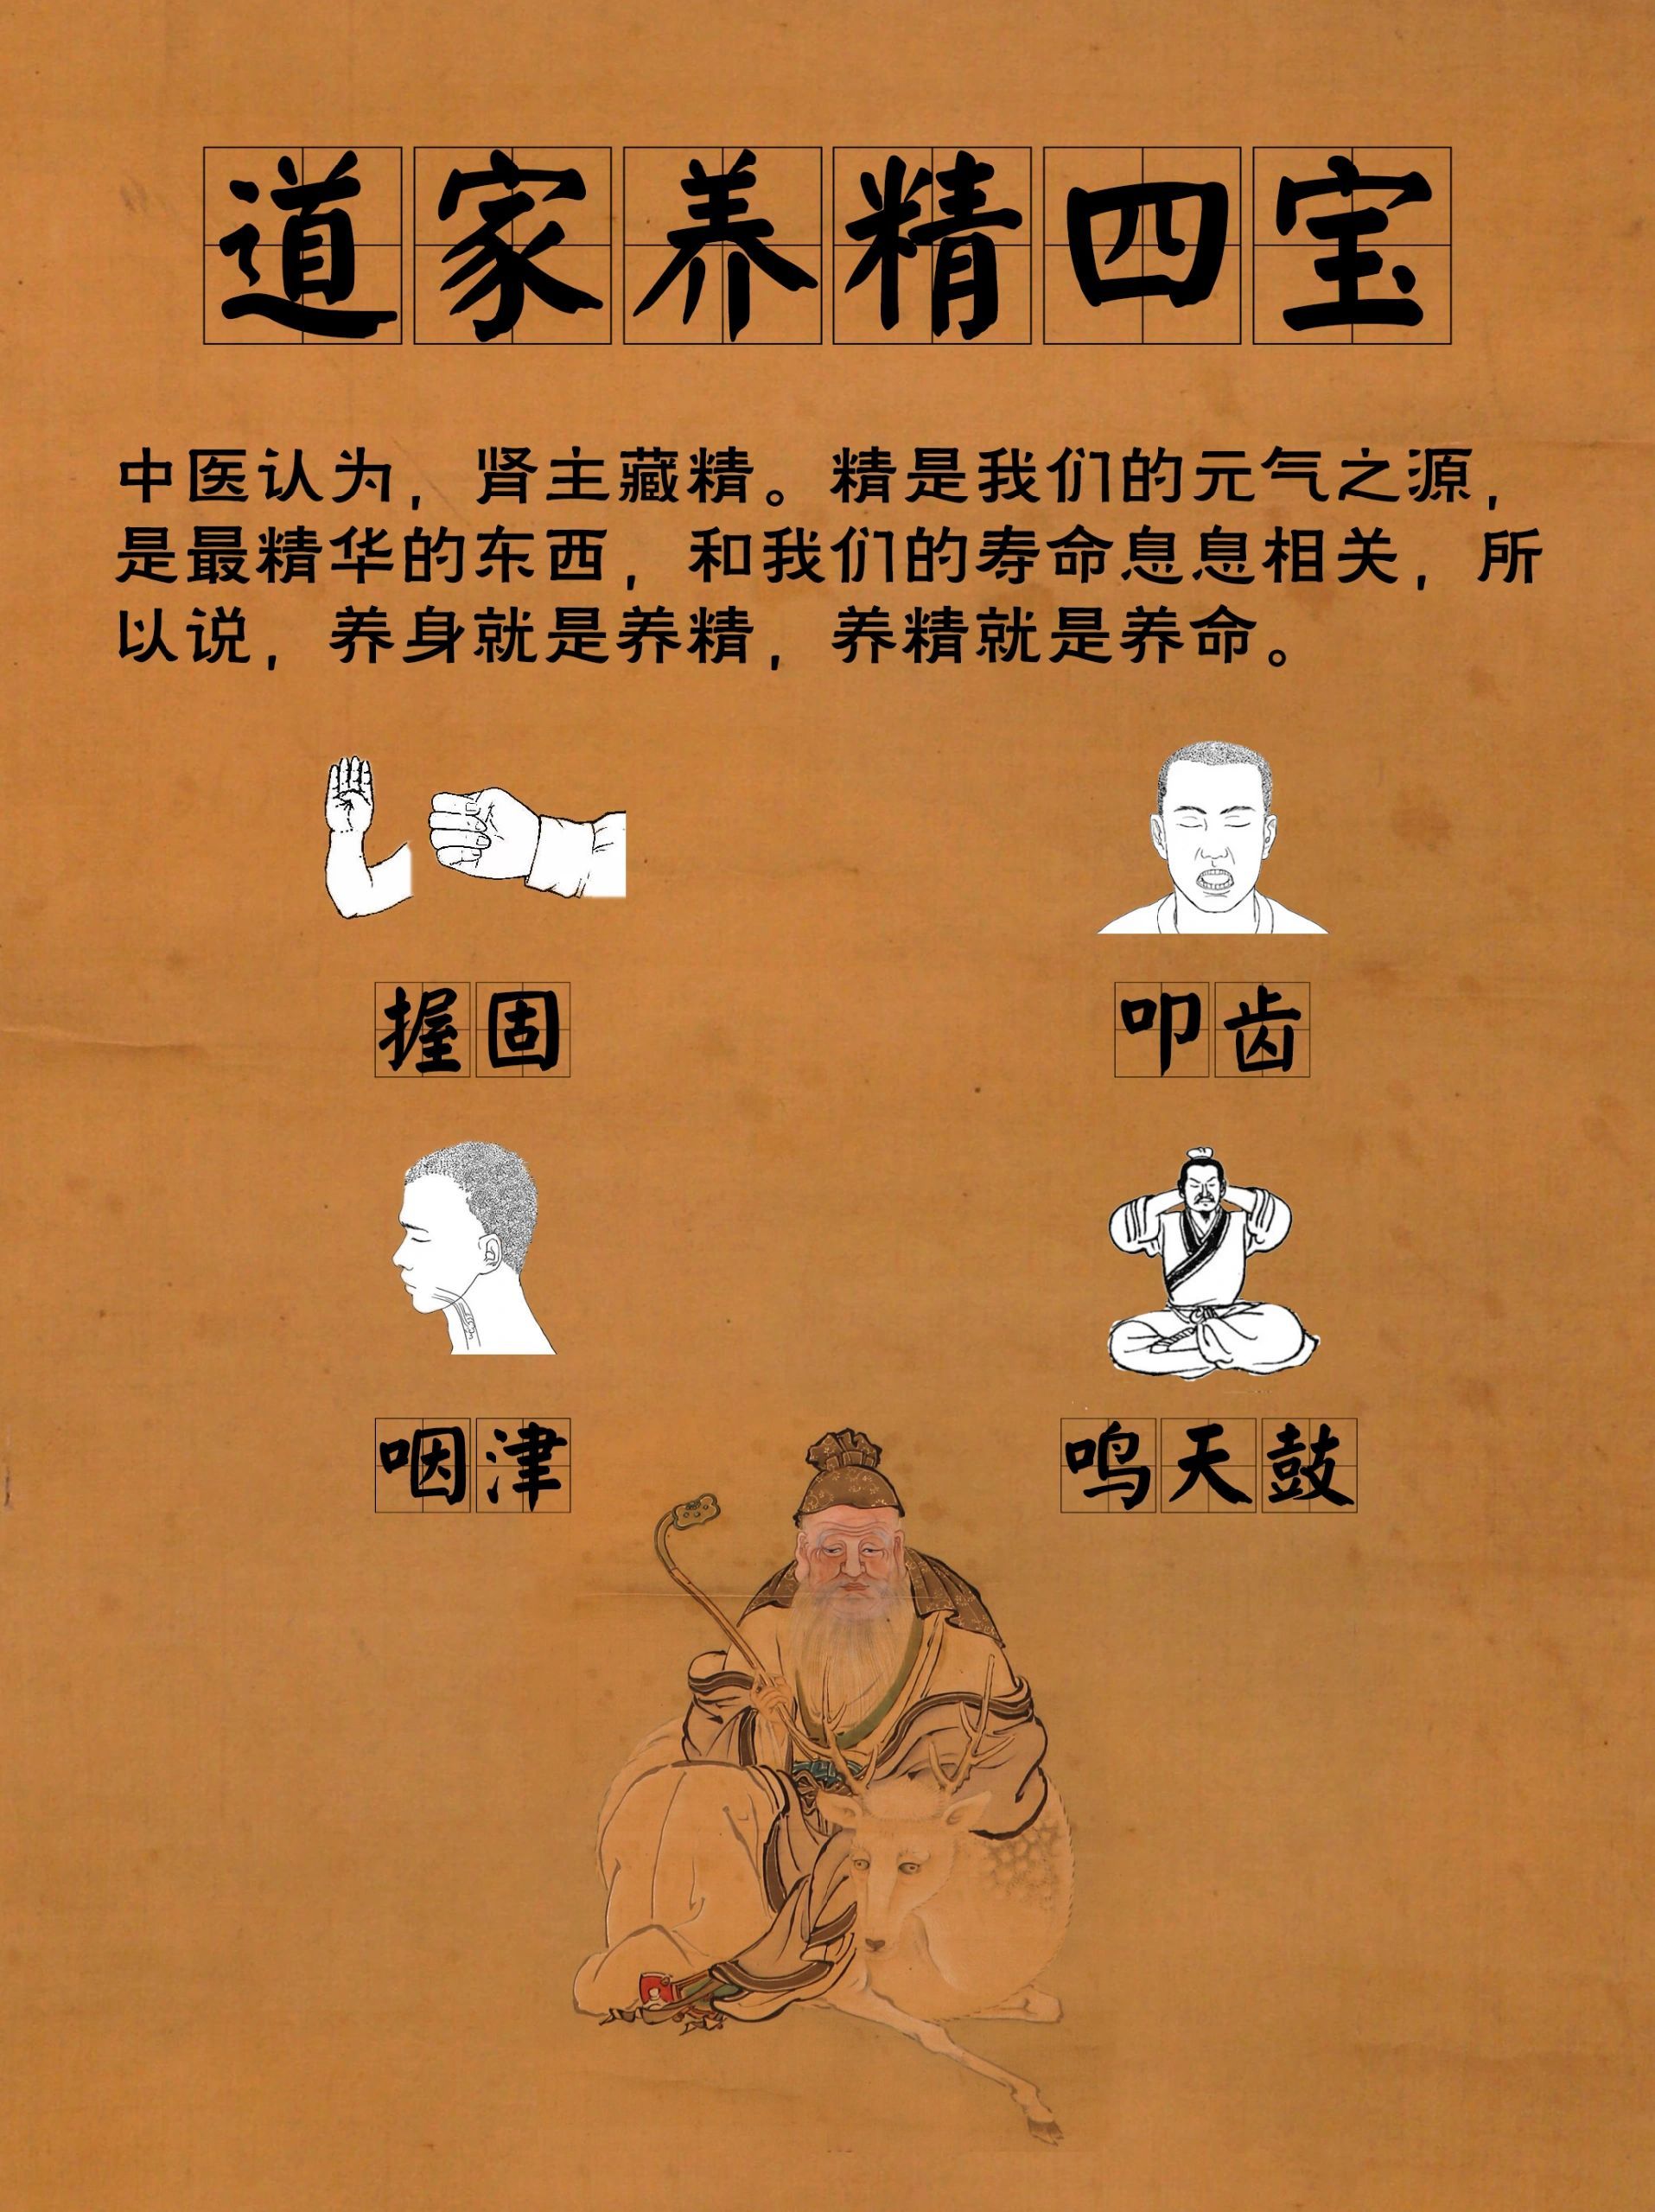 道家养精四宝
中医认为，肾主藏精。精是我们的元气之源，
是最精华的东西，和我们的寿命息息相关，所
以说，养身就是养精，养精就是养命。
握固
叩齿
咽津
鸣天鼓